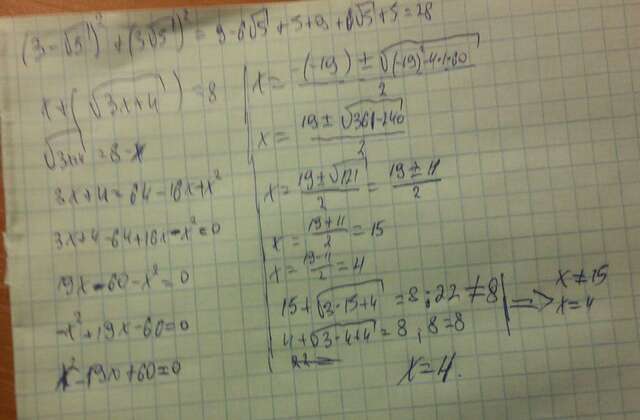 (3-√5)² + (3√5)² = 9-6√5+5+9+6√5+5=28
x+(√3x+4)=8
√3x+4=8-x
3x+4=64-16x+x²
3x+4-64+16x-x²=0
19x-60-x²=0
-x²+19x-60=0
x²-19x+60=0
x = (-(-19)±√(-19)²-4·1·60)/2
x = (19±√361-240)/2
x = (19±√121)/2 = (19±11)/2
x = (19+11)/2 = 15
x = (19-11)/2 = 4
15+√3·15+4 = 8; 22≠8
4+√3·4+4 = 8; 8=8
=> x≠15
x=4
x=4.